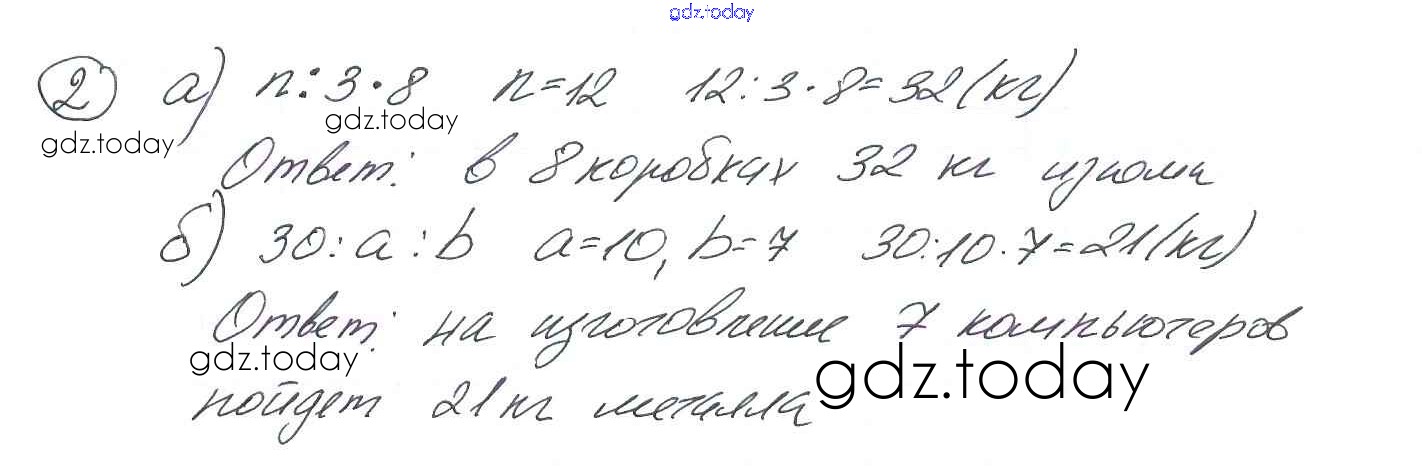 gdz.today
2 а) n:3·8 n=12 12:3·8=32(кг)
gdz.today
gdz.today
Ответ: в 8 коробках 32 кг изюма
б) 30:a:b a=10, b=7 30:10·7=21(кг)
Ответ: на изготовление 7 компьютеров
gdz.today
gdz.today
пойдет 21 кг металла